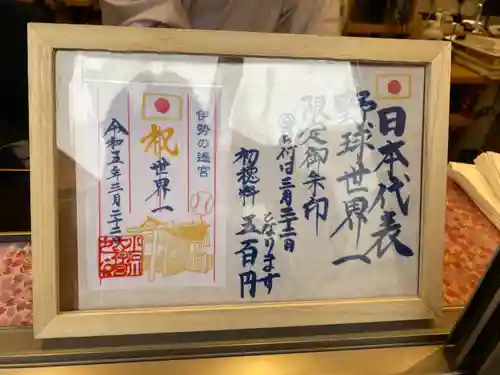 日本代表
野球世界一
限定御朱印
日付は三月二十二日
となります
初穂料 五百円
伊勢の遥宮
祝世界一
令和五年三月二十二日